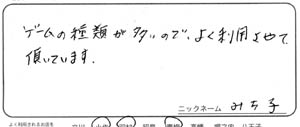 ゲームの種類が多いので、よく利用させて
頂いています.
ニックネーム みち子
よく利用されるお店を